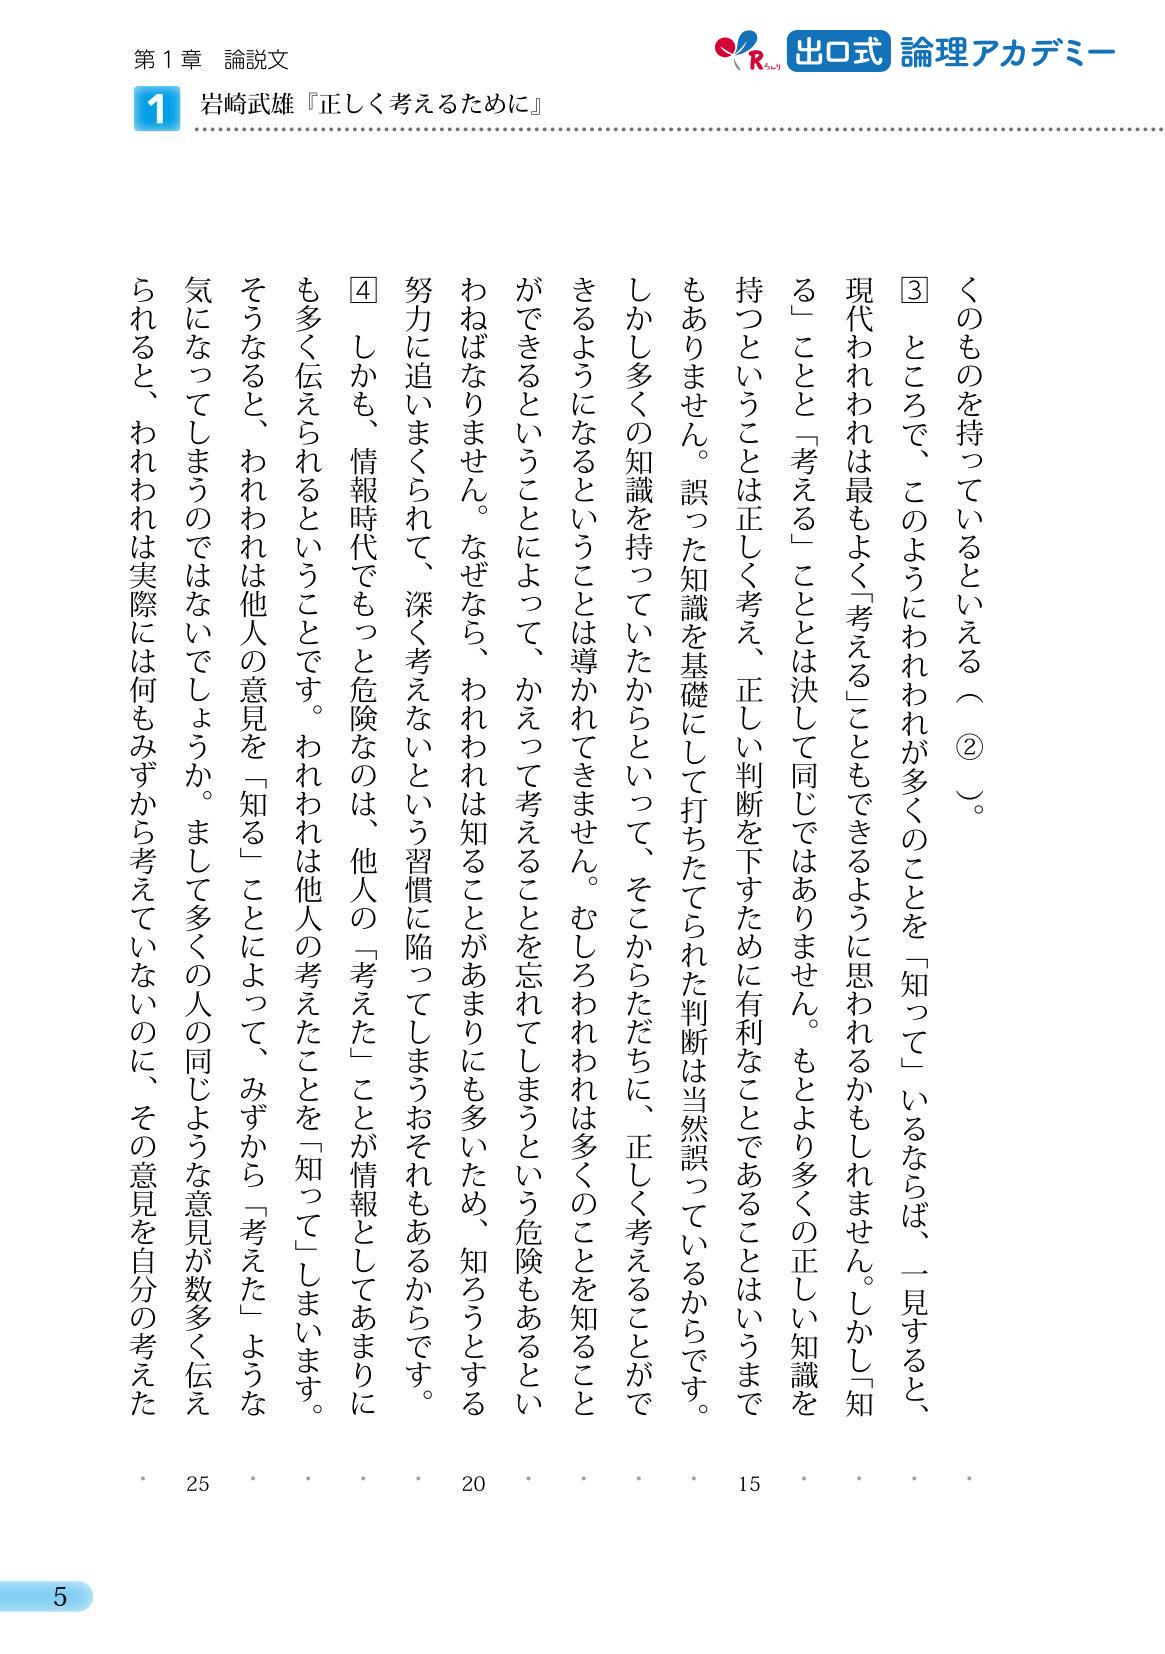 第1章 論説文
Rろんり 出口式 論理アカデミー
1 岩崎武雄『正しく考えるために』
くのものを持っているといえる(　②　)。
3　ところで、このようにわれわれが多くのことを「知って」いるならば、一見すると、
現代われわれは最もよく「考える」こともできるように思われるかもしれません。しかし「知
る」ことと「考える」こととは決して同じではありません。もとより多くの正しい知識を
持つということは正しく考え、正しい判断を下すために有利なことであることはいうまで
もありません。誤った知識を基礎にして打ちたてられた判断は当然誤っているからです。
しかし多くの知識を持っていたからといって、そこからただちに、正しく考えることがで
きるようになるということは導かれてきません。むしろわれわれは多くのことを知ること
ができるということによって、かえって考えることを忘れてしまうという危険もあるとい
わねばなりません。なぜなら、われわれは知ることがあまりにも多いため、知ろうとする
努力に追いまくられて、深く考えないという習慣に陥ってしまうおそれもあるからです。
4　しかも、情報時代でもっと危険なのは、他人の「考えた」ことが情報としてあまりに
も多く伝えられるということです。われわれは他人の考えたことを「知って」しまいます。
そうなると、われわれは他人の意見を「知る」ことによって、みずから「考えた」ような
気になってしまうのではないでしょうか。まして多くの人の同じような意見が数多く伝え
られると、われわれは実際には何もみずから考えていないのに、その意見を自分の考えた
15
20
25
5